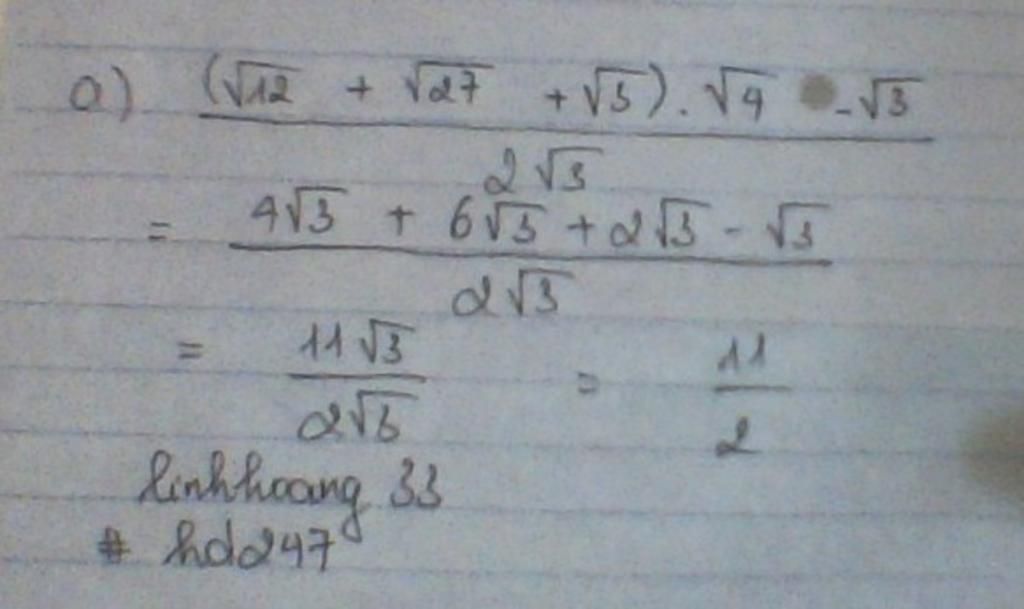 a) (√12 + √27 + √3) . √4 - √3
2√3
= 4√3 + 6√3 + 2√3 - √3
2√3
= 11√3 = 11
2√3 2
linhhoang 33
# hd247